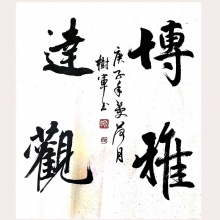 博雅
達觀
庚子年夏荷月
樹軍書